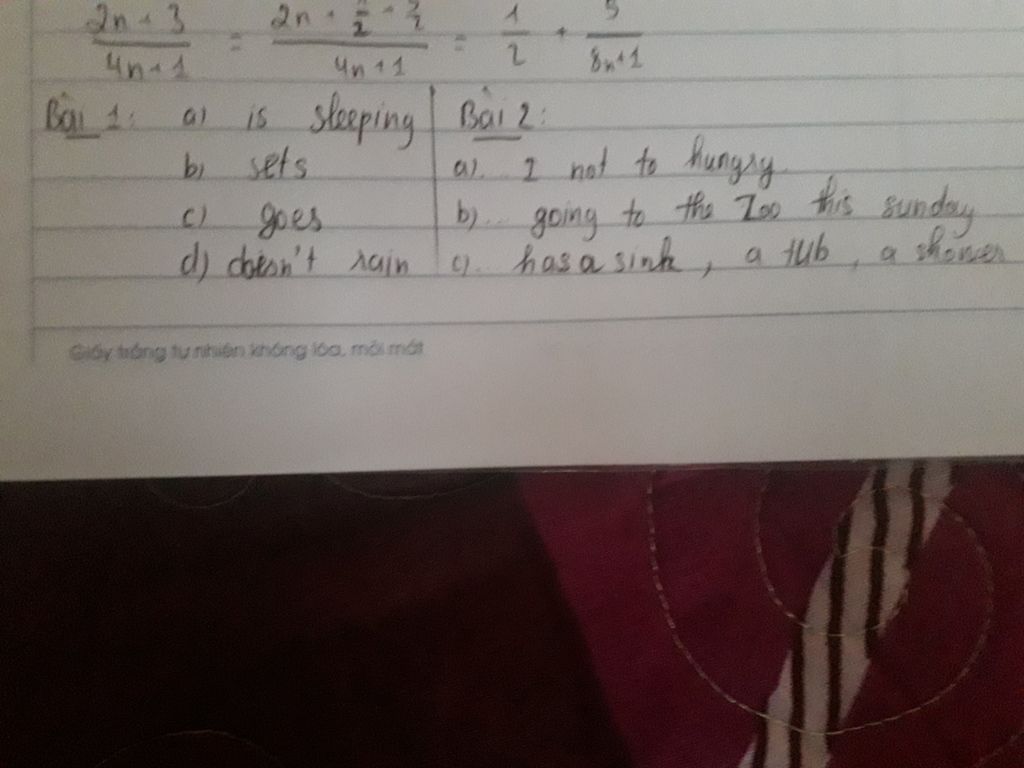 2n + 3 / 4n + 1 = 2n + 1/2 + 5/2 / 4n + 1 = 1/2 + 5 / 8n+1
Bài 1: a) is sleeping
b) sets
c) goes
d) doesn't rain
Bài 2:
a). I not to hungry
b)... going to the Zoo this sunday
c). has a sink, a tub, a shower
Giấy trắng tự nhiên không lóa, mỏi mắt